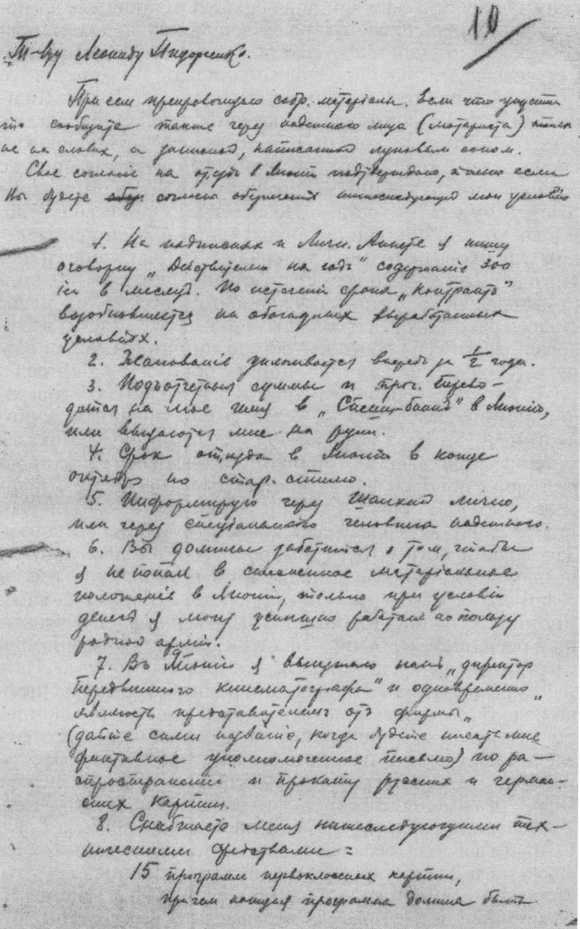 10
Т-щу Леониду Пидоренко.
При сем препровождаю собр. материалы. Если что упустил
то сообщите также через надежного лица (          ) только
не на словах, а запиской, написанной луковым соком.
Свое согласие на отъезд в Японию подтверждаю, только если
Вы будете согласны обусловить нижеследующие мои условия
1. На подписках и Личн. Анкете я пишу
оговорку „Действителен на годъ" содержание 300
в месяц. По истечении срока „Контрактъ"
возобновляется на обоюдных выработанных
условіях.
2. Жалование уплачивается вперед за 1/2 года.
3. Подъотчетныя суммы и проч. перево-
дятся на мое имя в „        -банк" в Японіи,
или выдаются мне на руки.
4. Срок отъезда в Японію в конце
октября по стар. стилю.
5. Информирую через         лично,
или через специального человека надежного.
6. Вы должны заботится о том, чтобы
я не попал в стесненное матеріальное
положеніе в Японіи, только при условіи
денег я могу успешно работать на пользу
родной арміи.
7. Въ Японіи я выезжаю какъ „директор
передвижного кинематографа" и одновременно
являюсь представителемъ отъ фирмы
(дайте сами названіе, когда будете писать мне
фиктивное уполномоченное письмо) по ра-
спространенію и прокату русских и герман-
ских картин.
8. Снабжаете меня нижеследующими тех-
ническими средствами:
15 программ первоклассных картин,
при чем каждая программа должна быть